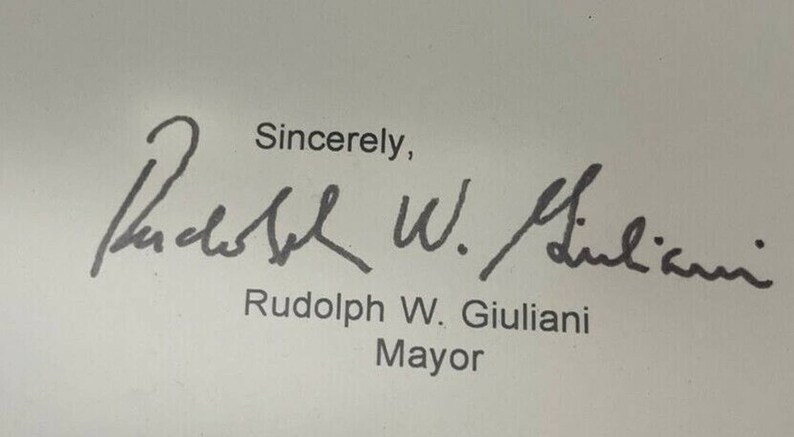 Sincerely,
Rudolph W. Giuliani
Rudolph W. Giuliani
Mayor